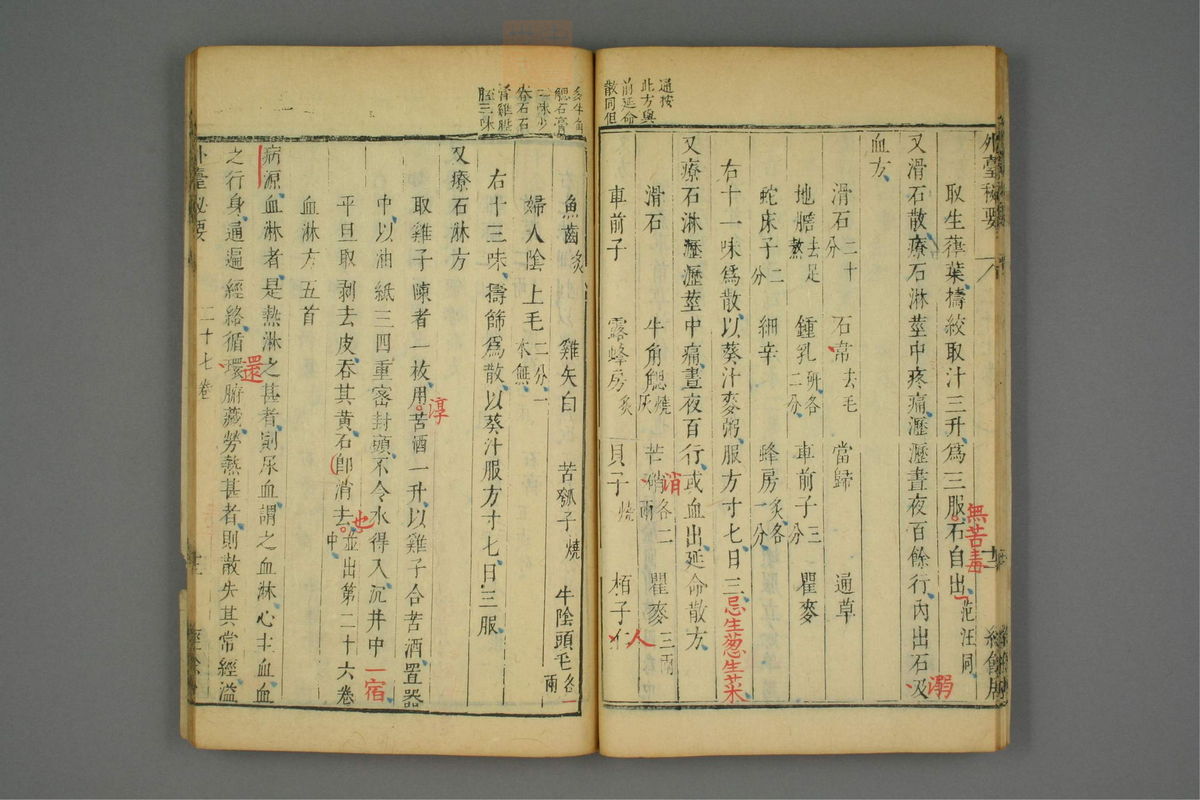 外臺秘要
取生葎葉擣絞取汁三升為三服石自出范汪同
無苦毒
又滑石散療石淋莖中疼痛瀝瀝晝夜百餘行內出石及
溺
血方
滑石二十分 石韋去毛 當歸 通草
地膽去足熬 鍾乳研各二分 車前子三分 瞿麥
蛇床子二分 細辛 蜂房炙各一分
右十一味為散以葵汁麥粥服方寸七日三
忌生葱生菜
又療石淋瀝瀝莖中痛晝夜百行或血出延命散方
滑石 牛角䚡燒灰 苦硝各二兩 瞿麥三兩
消
車前子 露蜂房炙 貝子燒 栢子
人
通按
此方與
前延命
散同但
多牛角
䚡石膏
二味少
石
雞
三味
魚齒炙 雞矢白 苦瓠子燒 牛陰頭毛各一兩
婦人陰上毛二分一本無
右十三味擣篩為散以葵汁服方寸七日三服
又療石淋方
取雞子陳者一枚用苦酒一升以雞子合苦酒置器
淳
中以油紙三四重密封頭不令水得入沉井中
一宿
平旦取剥去皮吞其黄石即消去並出第二十六卷
也
中
血淋方五首
病源血淋者是熱淋之甚者則尿血謂之血淋心主血血
之行身通遍經絡循環腑藏勞熱甚者則散失其常經溢
還
外臺秘要 二十七卷